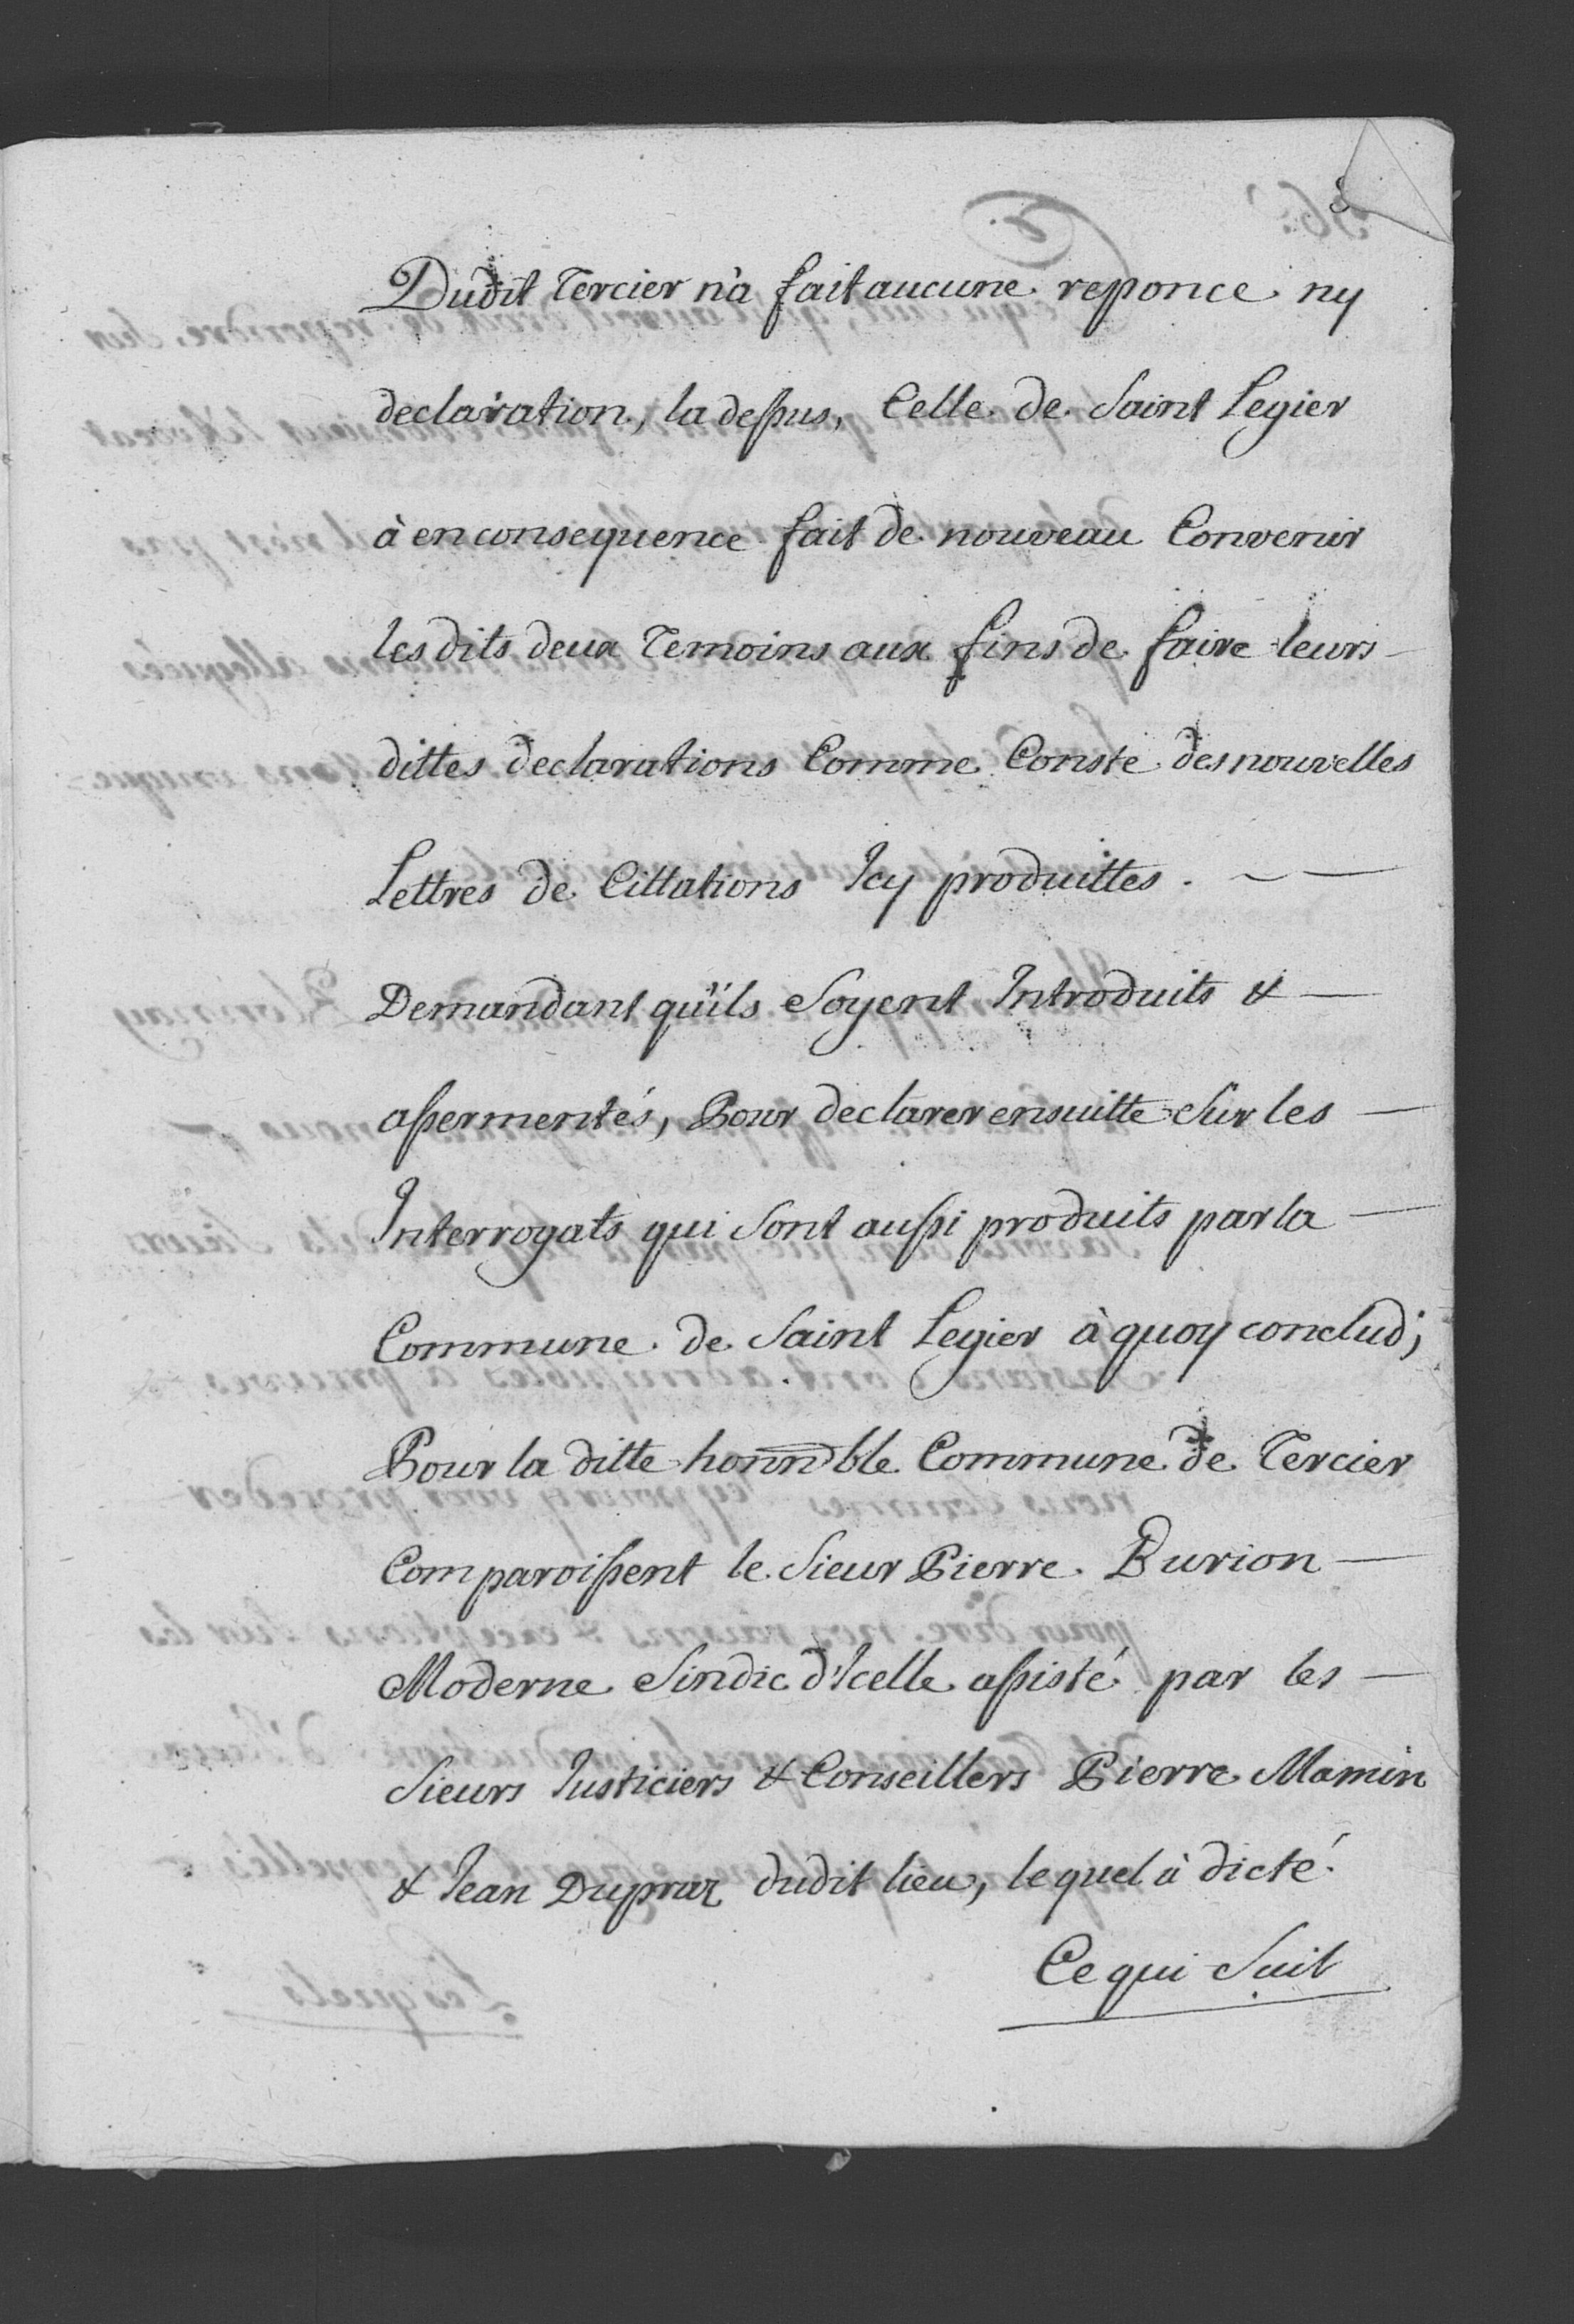 Dudit Tercier n'a fait aucune reponce ny
declaration, la dessus, Celle de Saint Legier
à en consequence fait de nouveau Convenir
les dits deux Temoins aux fins de faire leurs
dittes declarations Comme Conste des nouvelles
Lettres de Cittations Icy produittes. ~ —
Demandant qu'ils Soyent Introduits & —
assermentés, Pour declarer ensuitte Sur les —
Interrogats qui Sont aussi produits par la —
Commune de Saint Legier à quoy conclud;
Pour la ditte honnble Commune de Tercier
Comparoissent le Sieur Pierre Burion —
Moderne Sindic d'Icelle assisté par les —
Sieurs Justiciers & Conseillers Pierre Mamin
& Jean Dupraz dudit lieu, lequel à dicté
Ce qui Suit